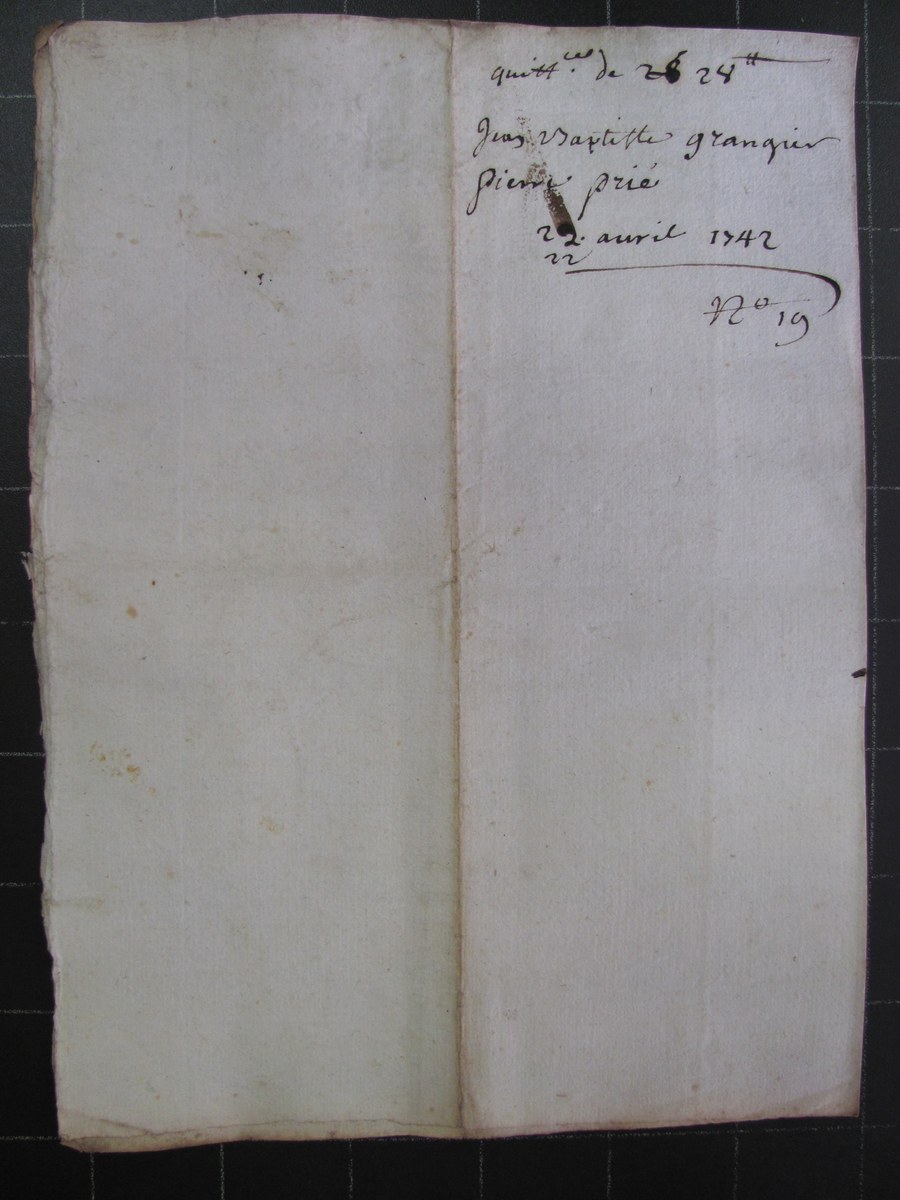 quittces de 28 28tt
Jean Baptiste grangier
pierre prié
22 auril 1742
22
No 19